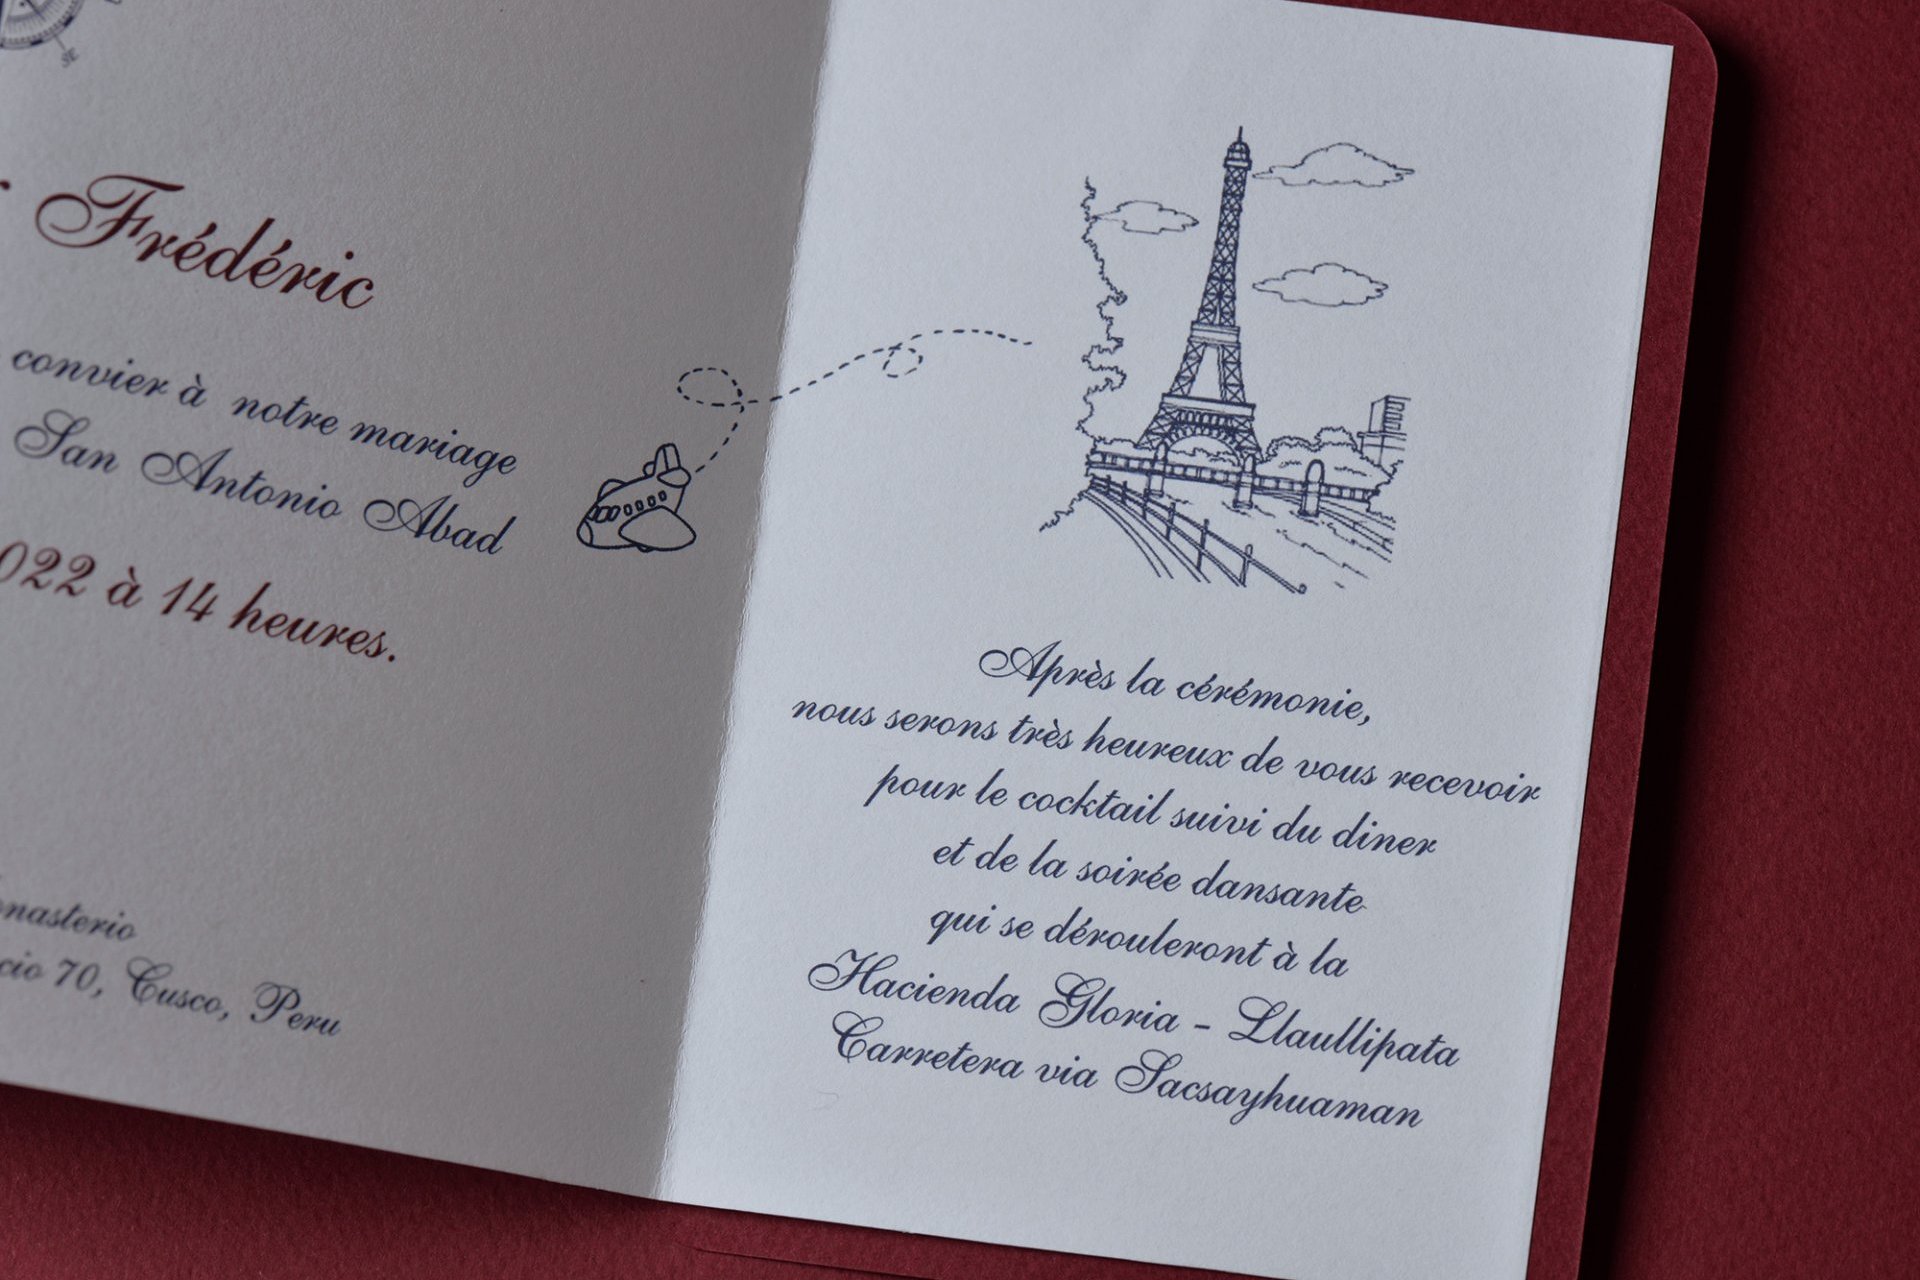 SE
Frédéric
convier à notre mariage
San Antonio Abad
022 à 14 heures.
onasterio
cio 70, Cusco, Peru
Après la cérémonie,
nous serons très heureux de vous recevoir
pour le cocktail suivi du diner
et de la soirée dansante
qui se dérouleront à la
Hacienda Gloria - Llaullipata
Carretera via Sacsayhuaman